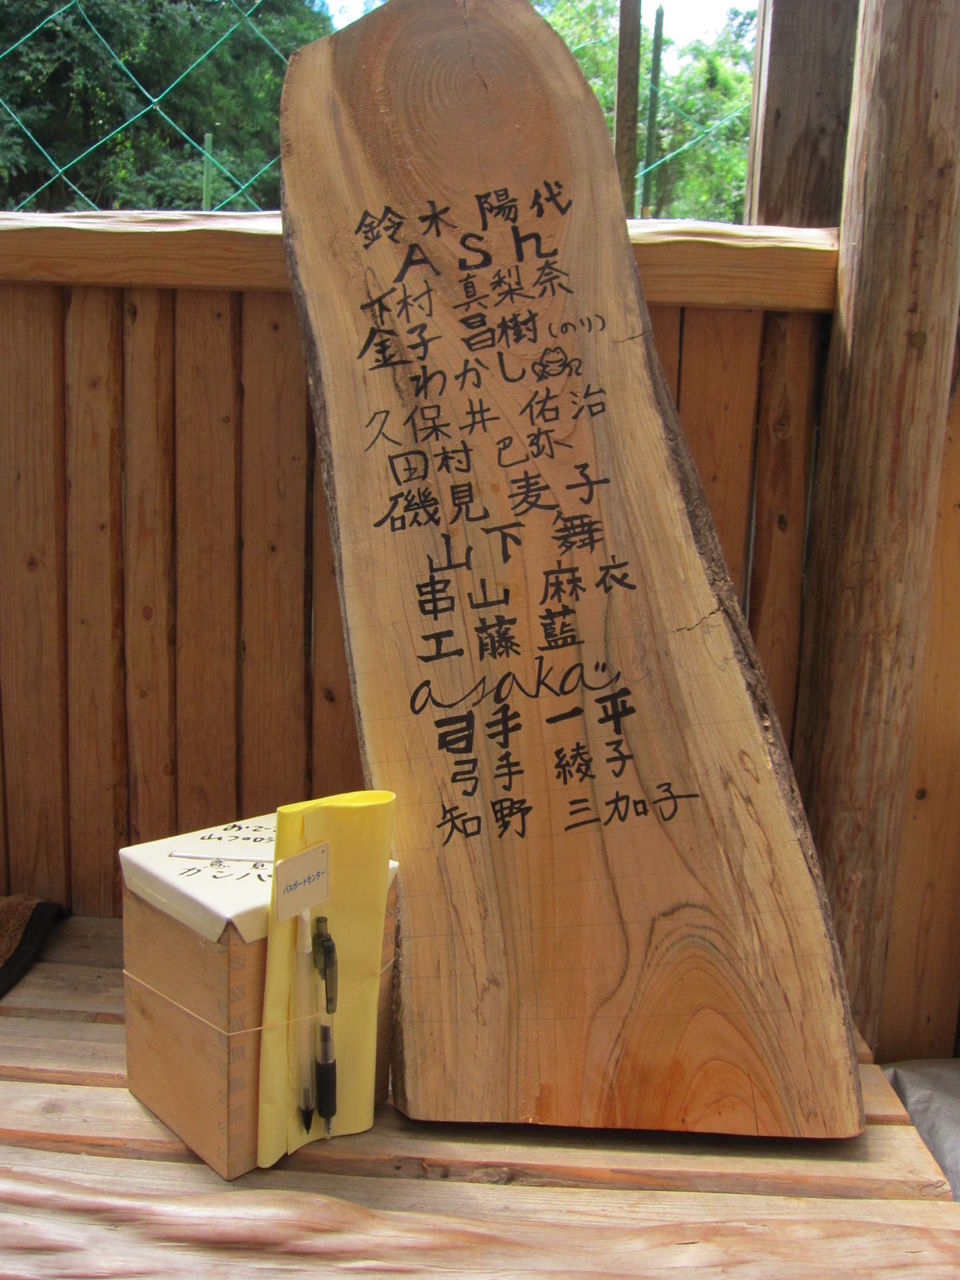 鈴木 陽代
ASh
下村 真梨奈
金子 昌樹(のり)
わかし
久保井 佑治
田村 巴弥
磯見 麦子
山下 舞
串山 麻衣
工藤 藍
asaka
弓手 一平
弓手 綾子
知野 三加子
パスポートセンター